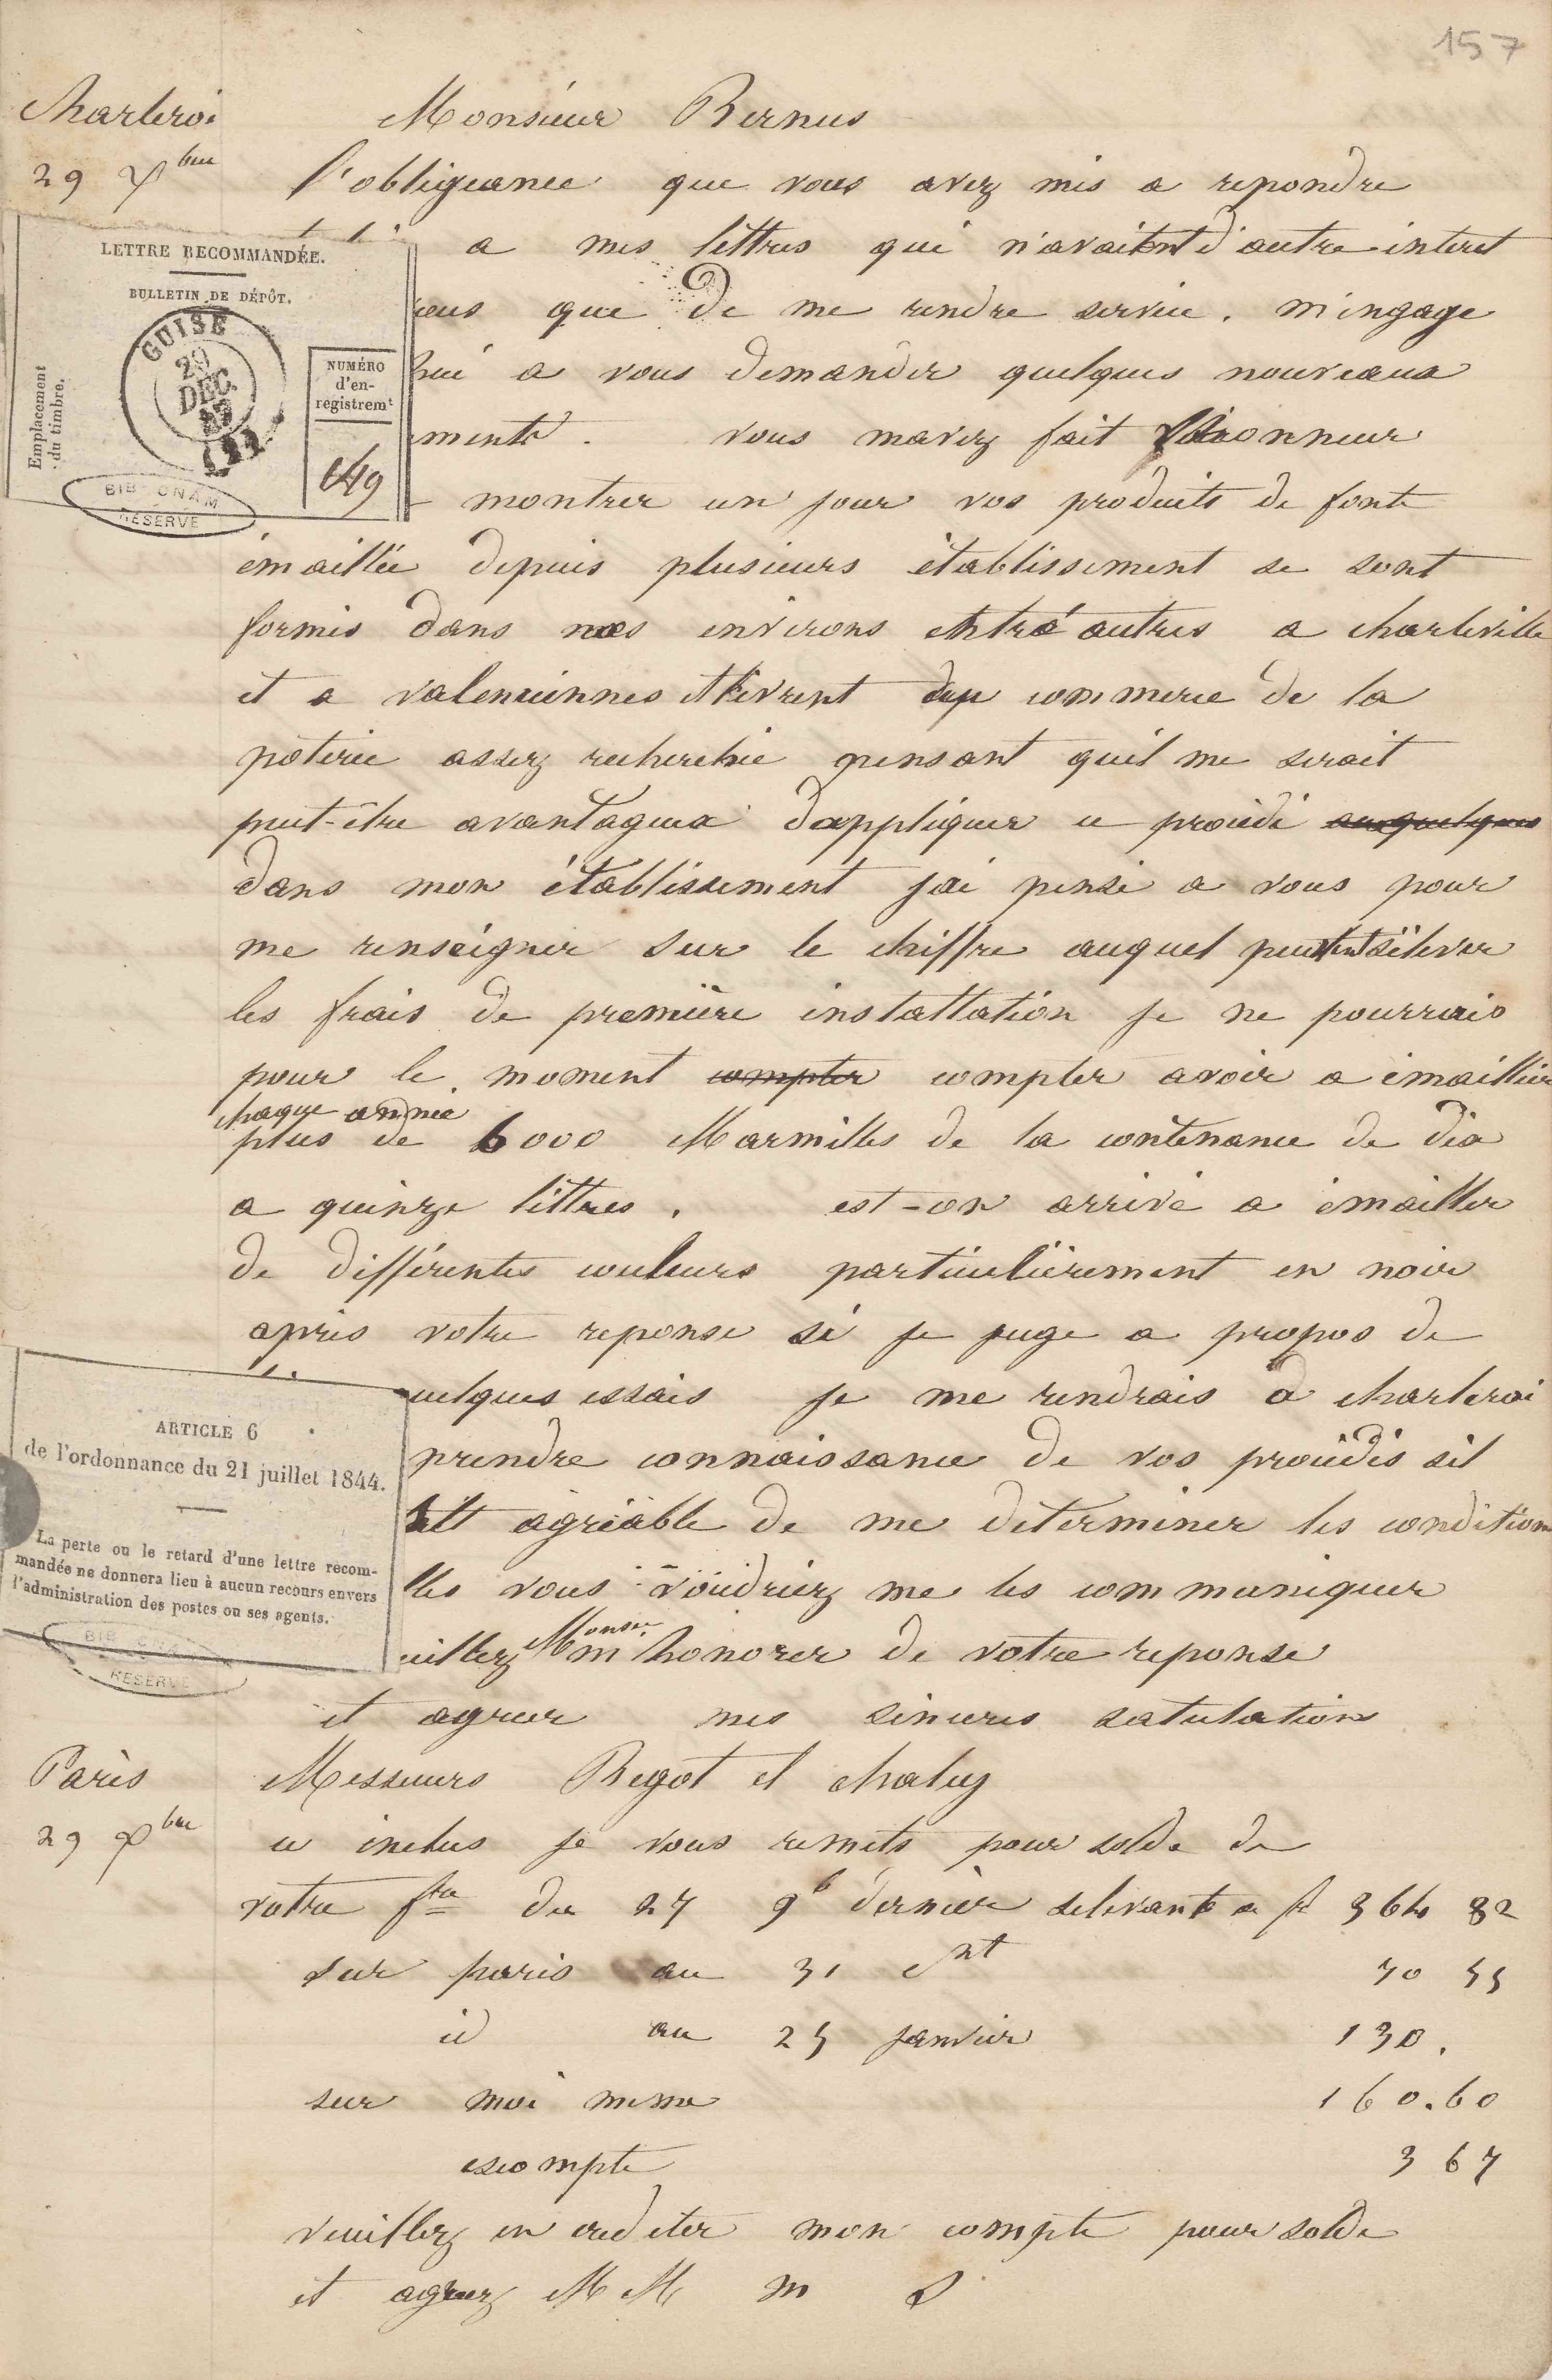 157
Charleroi
29 Xbre
Monsieur Bernus
l'obligeance que vous avez mis a repondre
a mes lettres qui n'avaient d'autre interet
vous que de me rendre service. m'engage
hui a vous demander quelques nouveaux
ments. vous mavez fait l'honneur
montrer un jour vos produits de fonte
émaillée depuis plusieurs établissement se sont
formés dans nos environs entr'autres a charleville
et a valenciennes et livrent au commerce de la
poterie assez recherchée pensant qu'il me serait
peut-être avantageux d'appliquer ce procédé aux quelques
dans mon établissement j'ai pensé a vous pour
me renseigner sur le chiffre auquel peuvent s'élever
les frais de première installation je ne pourrais
pour le moment compter compter avoir a émaillier
chaque année
plus de 6000 Marmites de la contenance de dix
a quinze littres. est-on arrivé a émailler
de différentes couleurs particulièrement en noir
après votre reponse si je juge a propos de
uelques essais je me rendrais à charleroi
prendre connaissance de vos procédés s'il
agréable de me déterminer les condition
lles vous voudriez me les communiquer
uillez Monsr m'honorer de votre reponse
et agreer mes sincères salutations
LETTRE RECOMMANDÉE.
BULLETIN DE DÉPÔT.
Emplacement
du timbre.
GUISE
29
DEC.
NUMÉRO
d'en-
registremt
149
BIB CNAM
RESERVE
ARTICLE 6
de l'ordonnance du 21 juillet 1844.
La perte ou le retard d'une lettre recom-
mandée ne donnera lieu à aucun recours envers
l'administration des postes ou ses agents.
BIB CNAM
RESERVE
Paris
29 Xbre
Messieurs Begot et chaluy
ci inclus je vous remets pour solde de
votre fre du 27 9b dernier selevant a fr 364 82
sur paris au 31 ct 70 55
id au 25 janvier 130.
sur moi meme 160.60
escompte 3 67
veuillez en crediter mon compte pour solde
et agreez M M m S